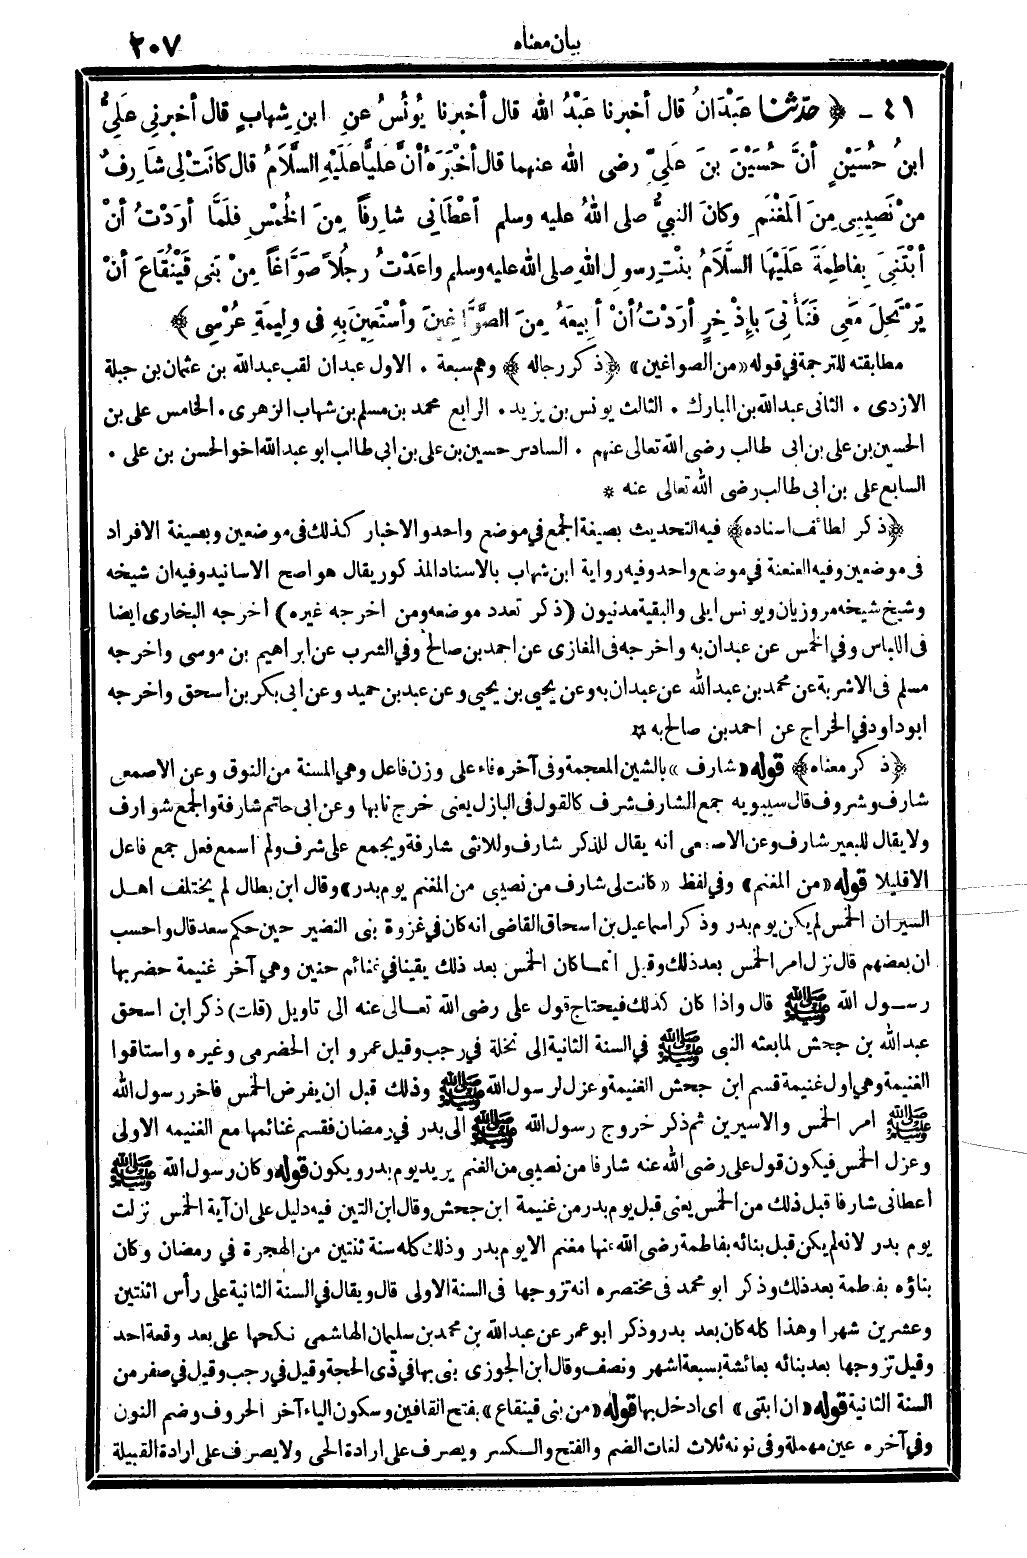 بيان معناه
٢٠٧
٤١ - ﴿ حدّثنا عَبْدَانُ قال أخبرنا عَبْدُ الله قال أخبرنا يُونُسُ عنِ ابنِ شِهابٍ قال أخبرني عَلِيُّ
ابنُ حُسَيْنٍ أنَّ حُسَيْنَ بنَ عَلِيٍّ رضى الله عنهما قال أخْبَرَهُ أنَّ عَلِيًّا عَلَيْهِ السَّلَامُ قال كانَتْ لِي شَارِفٌ
مِنْ نَصِيبِي مِنَ المَغْنَمِ وكانَ النبيُّ صلى اللهُ عليه وسلم أعْطَانِي شارِفاً مِنَ الخُمْسِ فلَمَّا أرَدْتُ أنْ
أبْتَنِيَ بِفاطِمَةَ عَلَيْهَا السَّلَامُ بِنْتِ رسولِ اللهِ صلى الله عليه وسلم واعَدْتُ رجُلاً صَوَّاغاً مِنْ بَنِي قَيْنُقَاعَ أنْ
يَرْتَحِلَ مَعِي فَنَأْتِيَ بِإذْخِرٍ أرَدْتُ أنْ أبِيعَهُ مِنَ الصَّوَّاغِينَ وأسْتَعِينَ بِهِ فِى ولِيمَةِ عُرْسِى ﴾
مطابقته للترجمة في قوله «من الصواغين» ﴿ذكر رجاله﴾ وهم سبعة . الاول عبدان لقب عبدالله بن عثمان بن جبلة
الازدى . الثانى عبدالله بن المبارك . الثالث يونس بن يزيد . الرابع محمد بن مسلم بن شهاب الزهرى . الخامس على بن
الحسين بن على بن ابى طالب رضى الله تعالى عنهم . السادس حسين بن على بن ابى طالب ابو عبدالله اخو الحسن بن على .
السابع على بن ابى طالب رضى الله تعالى عنه *
﴿ذكر لطائف اسناده﴾ فيه التحديث بصيغة الجمع في موضع واحد والاخبار كذلك في موضعين وبصيغة الافراد
فى موضعين وفيه العنعنة في موضع واحد وفيه رواية ابن شهاب بالاسناد المذكور يقال هو اصح الاسانيد وفيه ان شيخه
وشيخ شيخه مروزيان ويونس ايلى والبقية مدنيون (ذكر تعدد موضعه ومن اخرجه غيره) أخرجه البخارى ايضا
فى اللباس وفي الخمس عن عبدان به واخرجه فى المغازى عن احمد بن صالح وفي الشرب عن ابراهيم بن موسى واخرجه
مسلم فى الاشربة عن محمد بن عبدالله عن عبدان به وعن يحيى بن يحيى وعن عبد بن حميد وعن ابى بكر بن اسحق واخرجه
ابو داود في الخراج عن احمد بن صالح به *
﴿ذكر معناه﴾ قوله «شارف» بالشين المعجمة وفى آخره فاء على وزن فاعل وهي المسنة من النوق وعن الاصمعى
شارف وشروف قال سيبويه جمع الشارف شرف كالقول في البازل يعنى خرج نابها وعن ابى حاتم شارفة والجمع شوارف
ولا يقال للبعير شارف وعن الاصمعى انه يقال للذكر شارف وللانثى شارفة ويجمع على شرف ولم اسمع فعل جمع فاعل
الا قليلا قوله «من المغنم» وفي لفظ «كانت لى شارف من نصيبى من المغنم يوم بدر» وقال ابن بطال لم يختلف اهل
السيران الخمس لم يكن يوم بدر وذكر اسماعيل بن اسحاق القاضى انه كان في غزوة بنى النضير حين حكم سعد قال واحسب
ان بعضهم قال نزل امر الخمس بعد ذلك وقيل انما كان الخمس بعد ذلك يقينا في غنائم حنين وهي آخر غنيمة حضر بها
رسول الله ﷺ قال واذا كان كذلك فيحتاج قول على رضى الله تعالى عنه الى تاويل (قلت) ذكر ابن اسحق
عبدالله بن جحش لما بعثه النبى ﷺ في السنة الثانية الى نخلة في رجب وقيل عمرو ابن الحضرمى وغيره واستاقوا
الغنيمة وهي اول غنيمة قسم ابن جحش الغنيمة وعزل لرسول الله ﷺ وذلك قبل ان يفرض الخمس فاخر رسول الله
ﷺ امر الخمس والاسيرين ثم ذكر خروج رسول الله ﷺ الى بدر في رمضان فقسم غنائمها مع الغنيمه الاولى
وعزل الخمس فيكون قول على رضى الله عنه شارفا من نصيبى من الغنم يريد يوم بدر ويكون قوله وكان رسول الله ﷺ
أعطانى شارفا قبل ذلك من الخمس يعنى قبل يوم بدر من غنيمة ابن جحش وقال ابن التين فيه دليل على ان آية الخمس نزلت
يوم بدر لانه لم يكن قبل بنائه بفاطمة رضى الله عنها مغنم الا يوم بدر وذلك كله سنة ثنتين من الهجرة في رمضان وكان
بناؤه بفاطمة بعد ذلك وذكر ابو محمد فى مختصره انه تزوجها فى السنة الاولى قال ويقال في السنة الثانية على رأس اثنتين
وعشرين شهرا وهذا كله كان بعد بدر وذكر ابو عمر عن عبدالله بن محمد بن سليمان الهاشمى نكحها على بعد وقعة احد
وقيل تزوجها بعد بنائه بعائشة بسبعة اشهر ونصف وقال ابن الجوزى بنى بها في ذى الحجة وقيل في رجب وقيل في صفر من
السنة الثانية قوله «ان ابتنى» اى ادخل بها قوله «من بنى قينقاع» بفتح القافين وسكون الياء آخر الحروف وضم النون
وفي آخره عين مهملة وفى نونه ثلاث لغات الضم والفتح والكسر ويصرف على ارادة الحى ولا يصرف على ارادة القبيلة